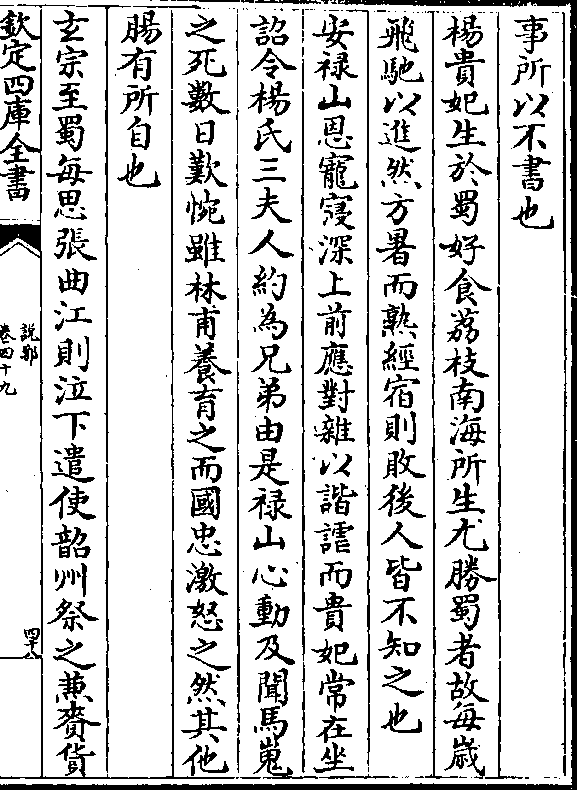 事所以不書也
楊貴妃生於蜀好食荔枝南海所生尤勝蜀者故每歲
飛馳以進然方暑而熟經宿則敗後人皆不知之也
安禄山恩寵寖深上前應對雜以諧謔而貴妃常在坐
詔令楊氏三夫人約為兄弟由是禄山心動及聞馬嵬
之死數日歎惋雖林甫養育之而國忠激怒之然其他
腸有所自也
玄宗至蜀每思張曲江則泣下遣使韶州祭之兼賫貨
欽定四庫全書
說郛
卷四十九
四十八